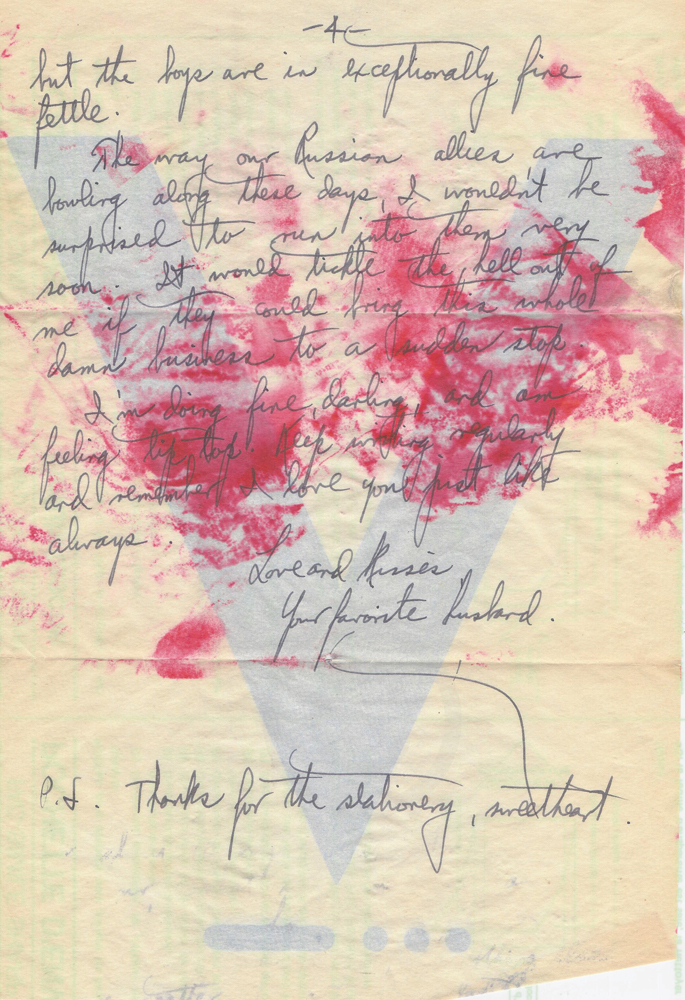 -4-
but the boys are in exceptionally fine
fettle.
The way our Russian allies are
bowling along these days, I wouldn't be
surprised to run into them very
soon. It would tickle the hell out of
me if they could bring this whole
damn business to a sudden stop.
I'm doing fine, darling, and am
feeling tip top. Keep writing regularly
and remember I love you just like
always.
Love and Kisses,
Your favorite husband.
P.S. Thanks for the stationery, sweetheart.